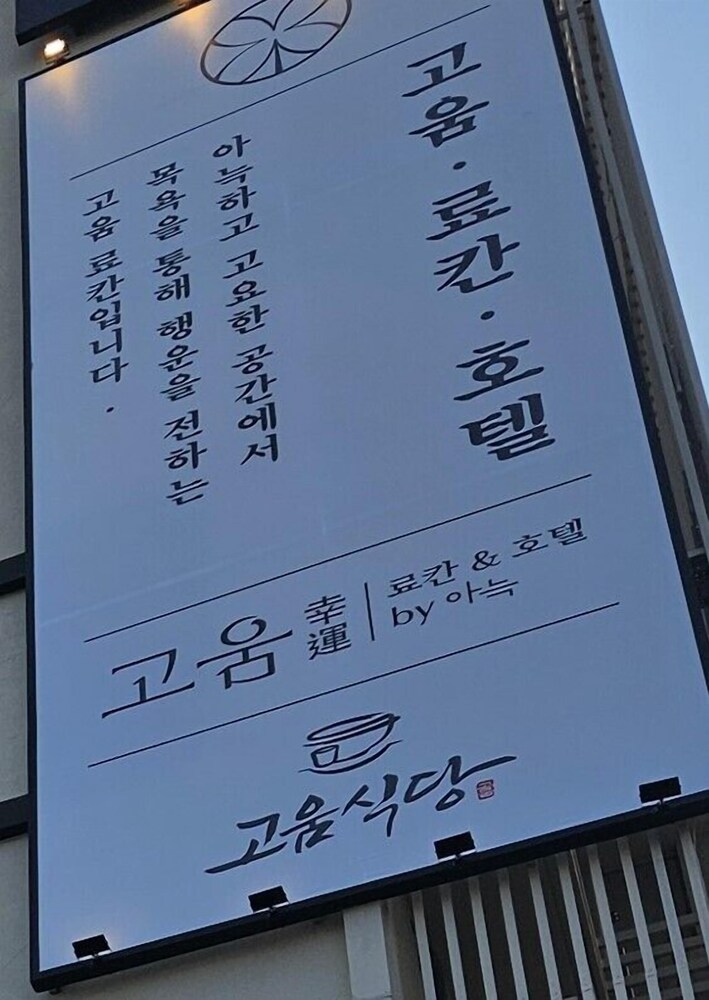 고움·료칸·호텔
아늑하고 고요한 공간에서
목욕을 통해 행운을 전하는
고움 료칸입니다.
고움 幸運 료칸 & 호텔
by 아늑
고움식당